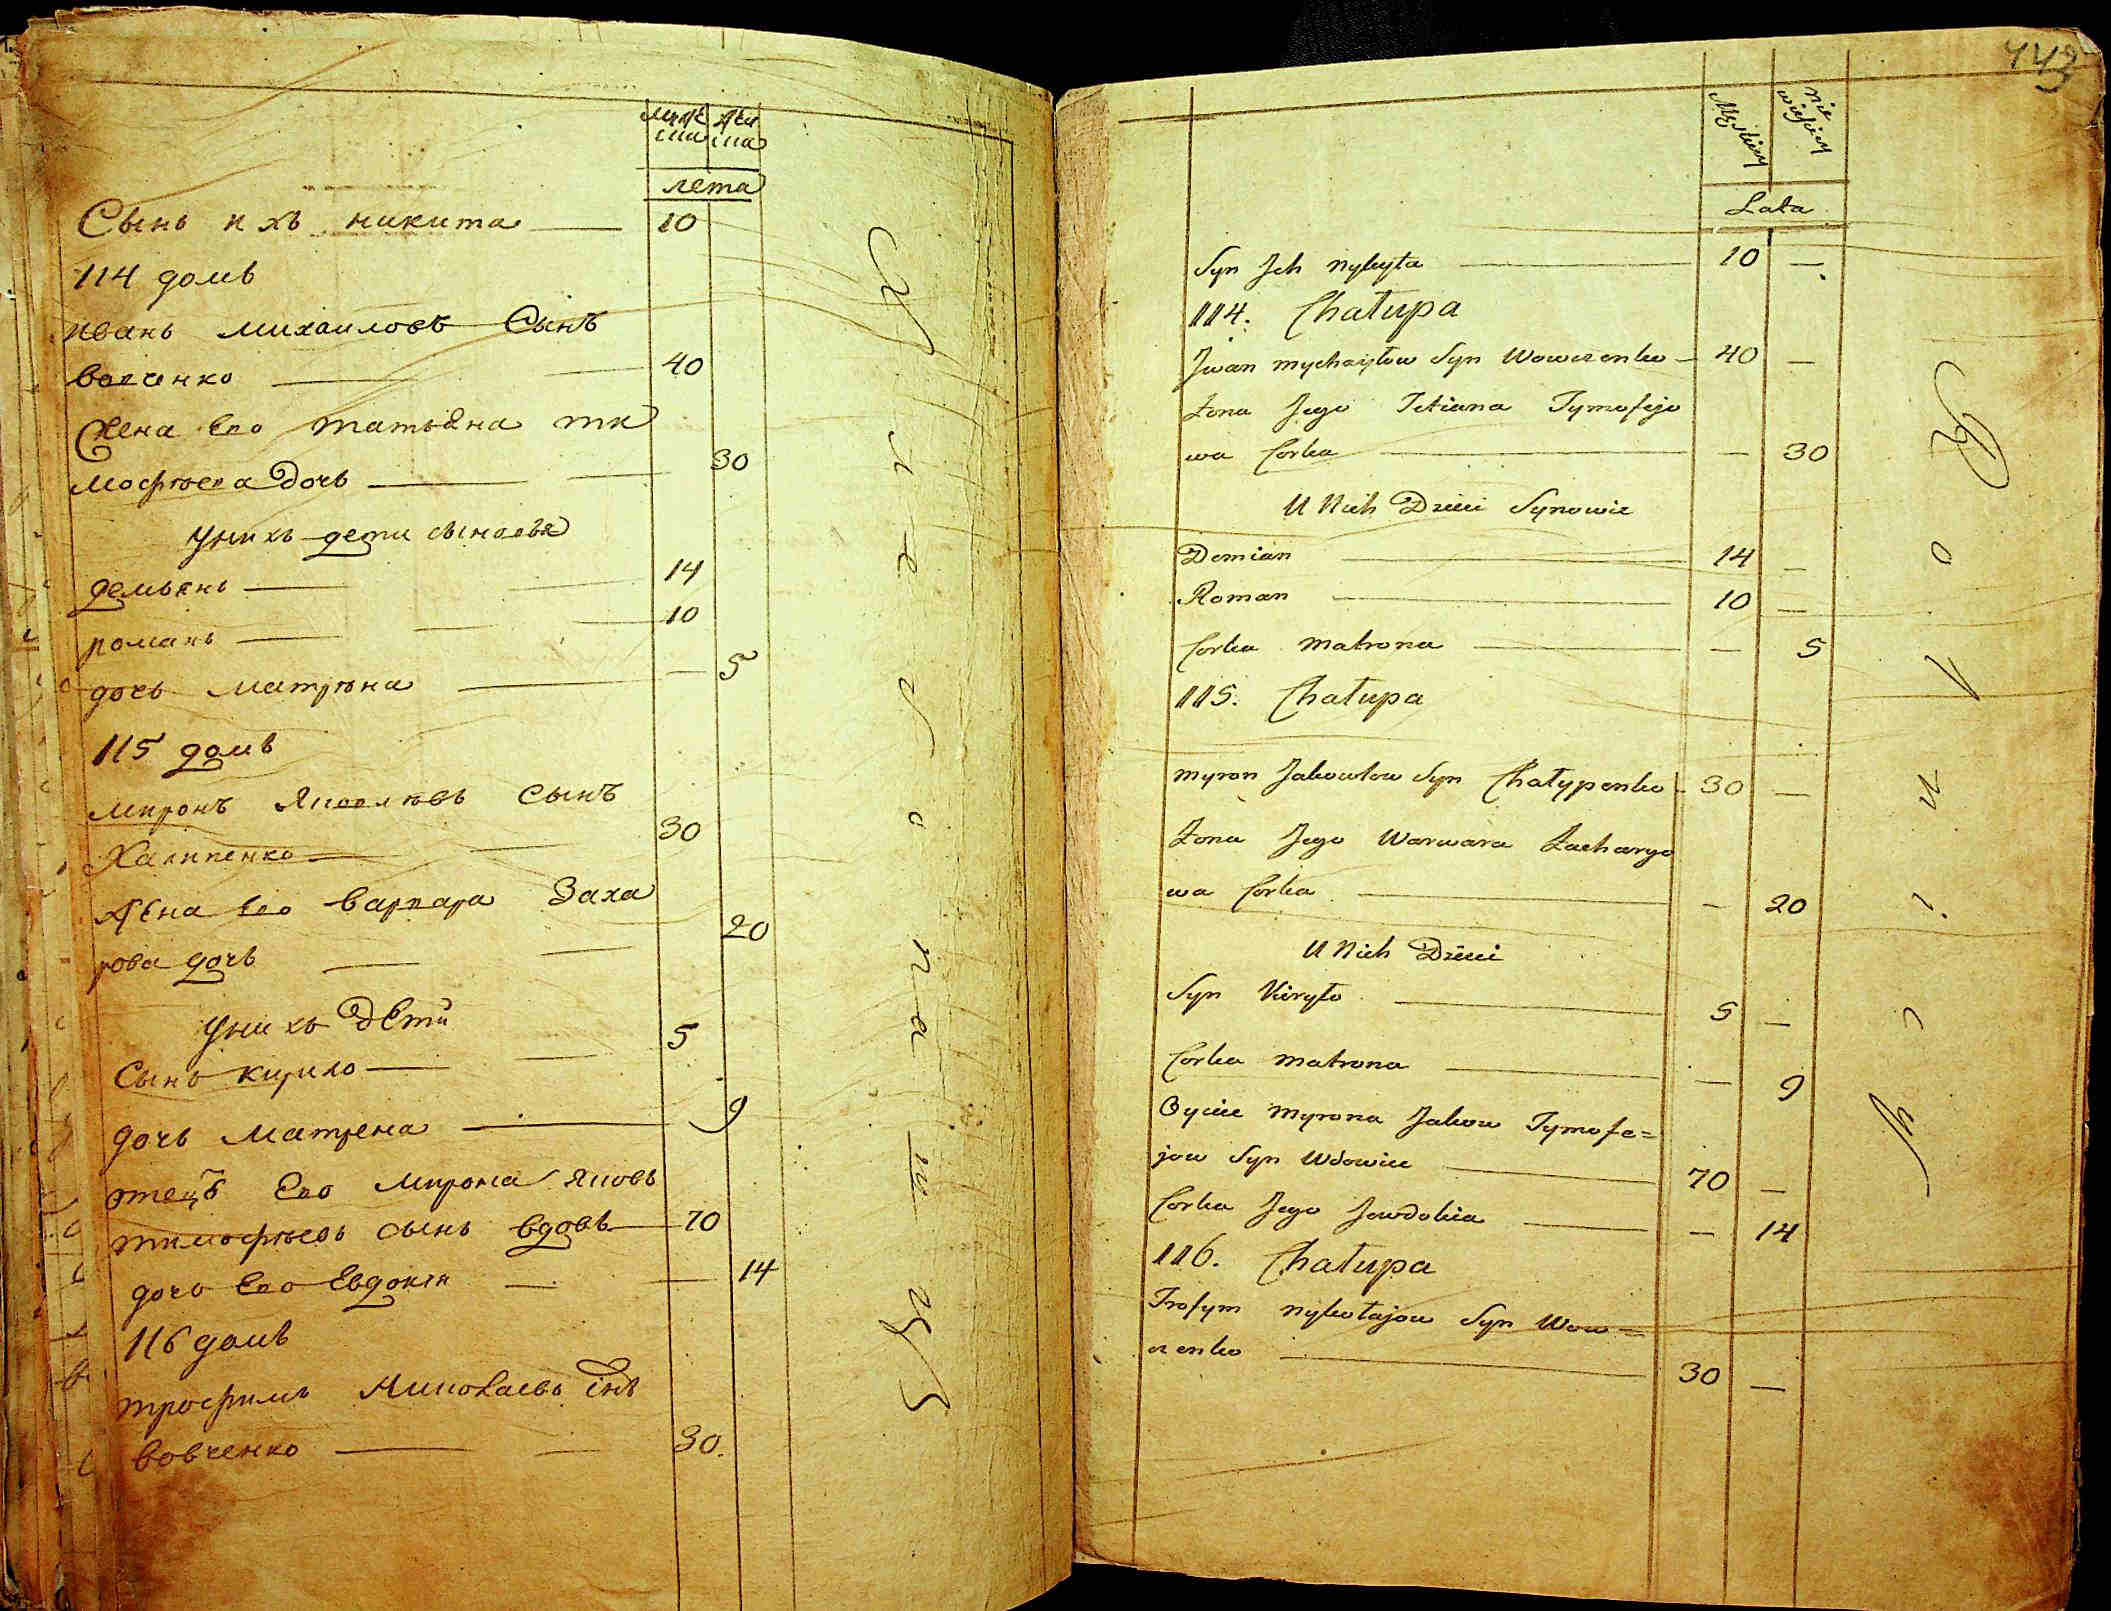 муж жен
ска ска
лета
Сынь ихъ никита 10
114 домъ
иванъ михаиловъ Сынъ
вовченко 40
Жена Его татьяна ти
мофѣева Дочь 30
У нихъ дети сыновья
демьянъ 14
романъ 10
дочь матрѣна 5
115 домъ
миронъ Яковлѣвъ сынъ
Халипенко 30
Жена Его варвара Заха
рова дочь 20
У нихъ Дети
Сынъ кирило 5
дочь матрена 9
отецъ Его мирона Яковъ
тимофѣевъ сынъ вдовъ 70
дочь Его Евдокия 14
116 домъ
трофимъ Николаевъ Снъ
вовченко 30
Хлебопашцы
443
Męskiey
nie
wieściey
Lata
Syn Jch nykyta 10 —
114. Chałupa
Jwan mychayłow Syn Wowczenko 40 —
Żona Jego Tetiana Tymofeje
wa Corka — 30
U Nich Dzieci Synowie
Demian 14 —
Roman 10 —
Corka matrona — 5
115. Chałupa
myron Jakowlow Syn Chałypenko 30 —
Żona Jego Warwara Zacharyo
wa Corka — 20
U Nich Dzieci
Syn Kiryło 5 —
Corka matrona — 9
Oyciec myrona Jakow Tymofe=
jow Syn Wdowiec 70 —
Corka Jego Jewdokia — 14
116. Chałupa
Trofym nykołajow Syn Wow=
czenko 30 —
Rolnicy